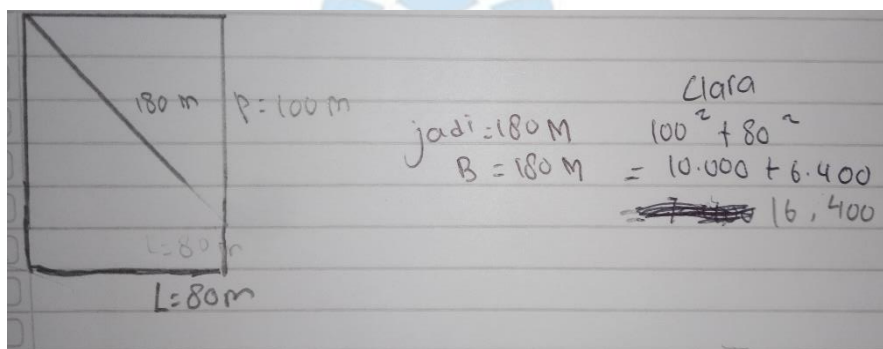 180 m
P = 100 m
L = 80 m
L = 80 m
jadi = 180 M
B = 180 M
Clara
100² + 80²
= 10.000 + 6.400
= 16,400